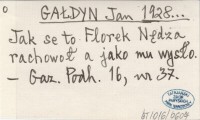 GAŁDYN Jan 1928...
Jak se to Florek Nędza
rachował a jako mu wysło.
– Gaz. Podh. 16, nr 37.